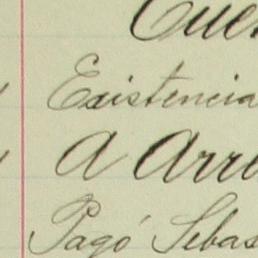 Cuen
Existencia
A Arre
Pagó Sebas